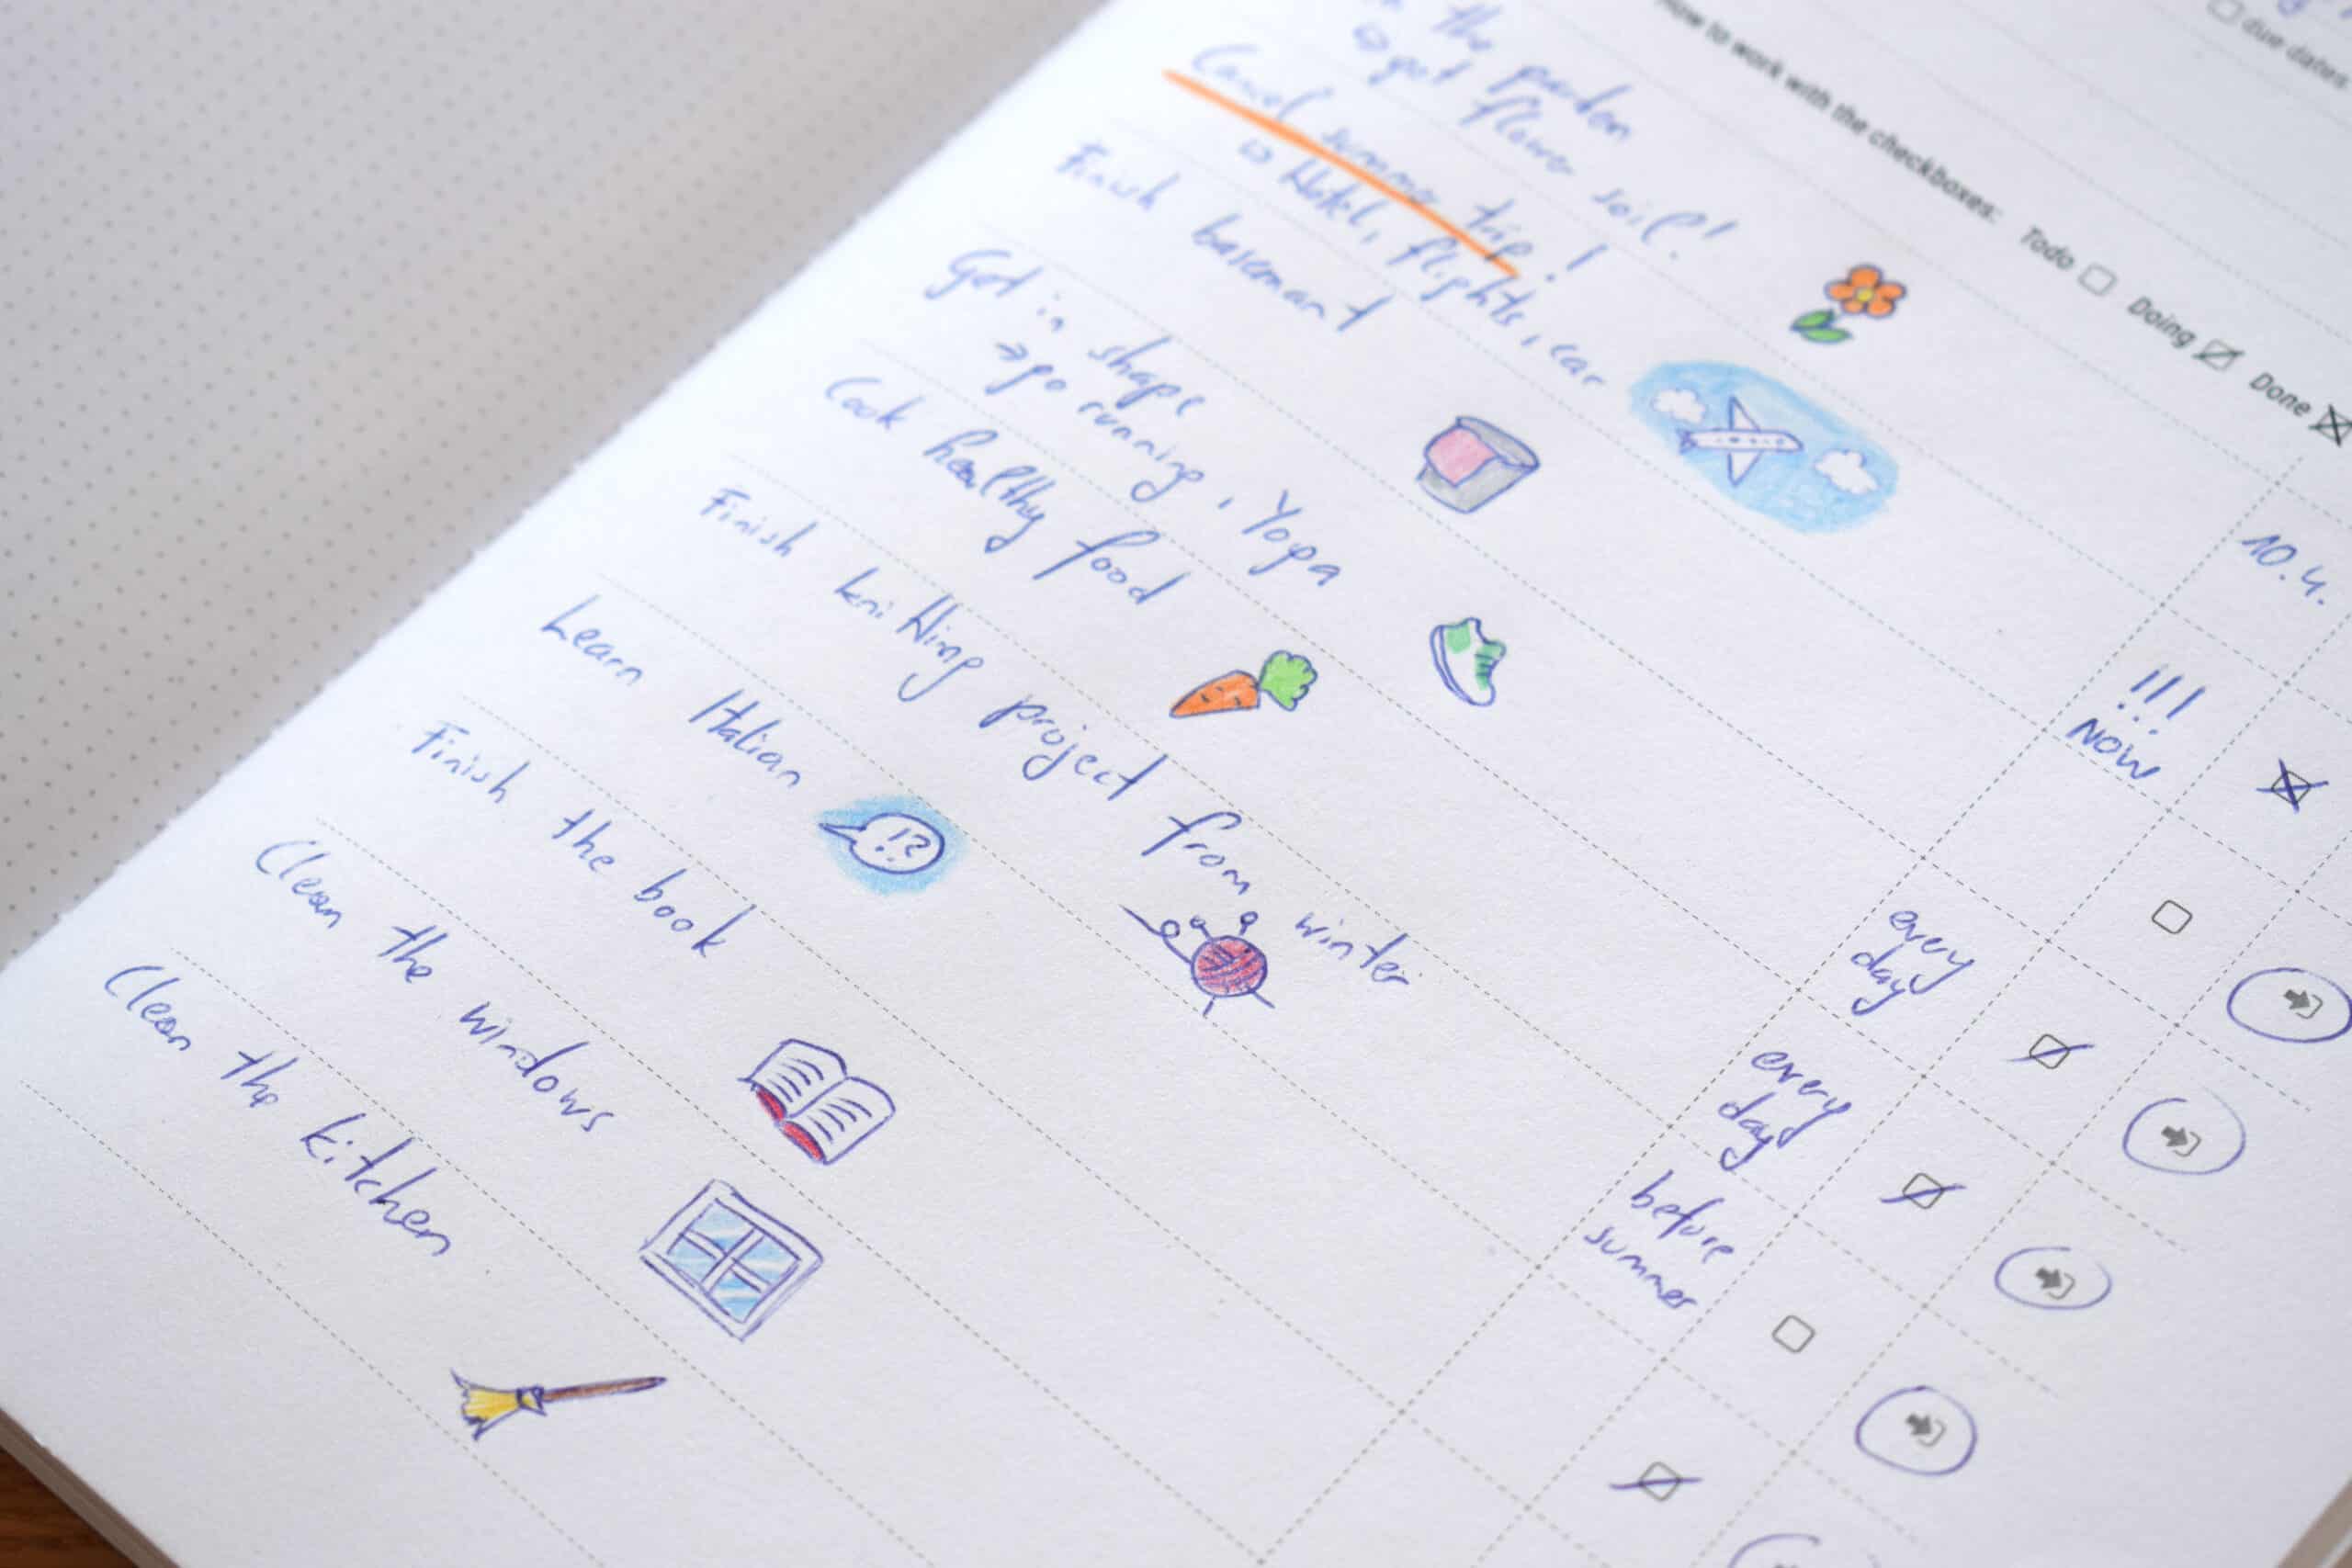 due dates
How to work with the checkboxes: Todo Doing Done
the garden
→ get flower soil!
10.4.
Cancel summer trip!
→ Hotel, flights, car
!!!
NOW
Finish basemant
Get in shape
→ go running, Yoga
every
day
Cook healthy food
every
day
Finish knitting project from winter
before
summer
Learn Italian
!?
Finish the book
Clean the windows
Clean the kitchen